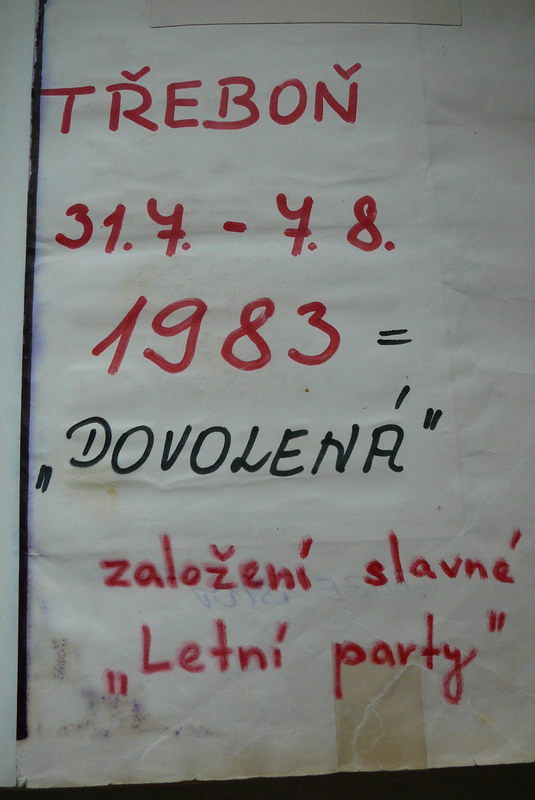 TŘEBOŇ
31.7. - 7. 8.
1983 =
„DOVOLENÁ"
založení slavné
„Letní party"